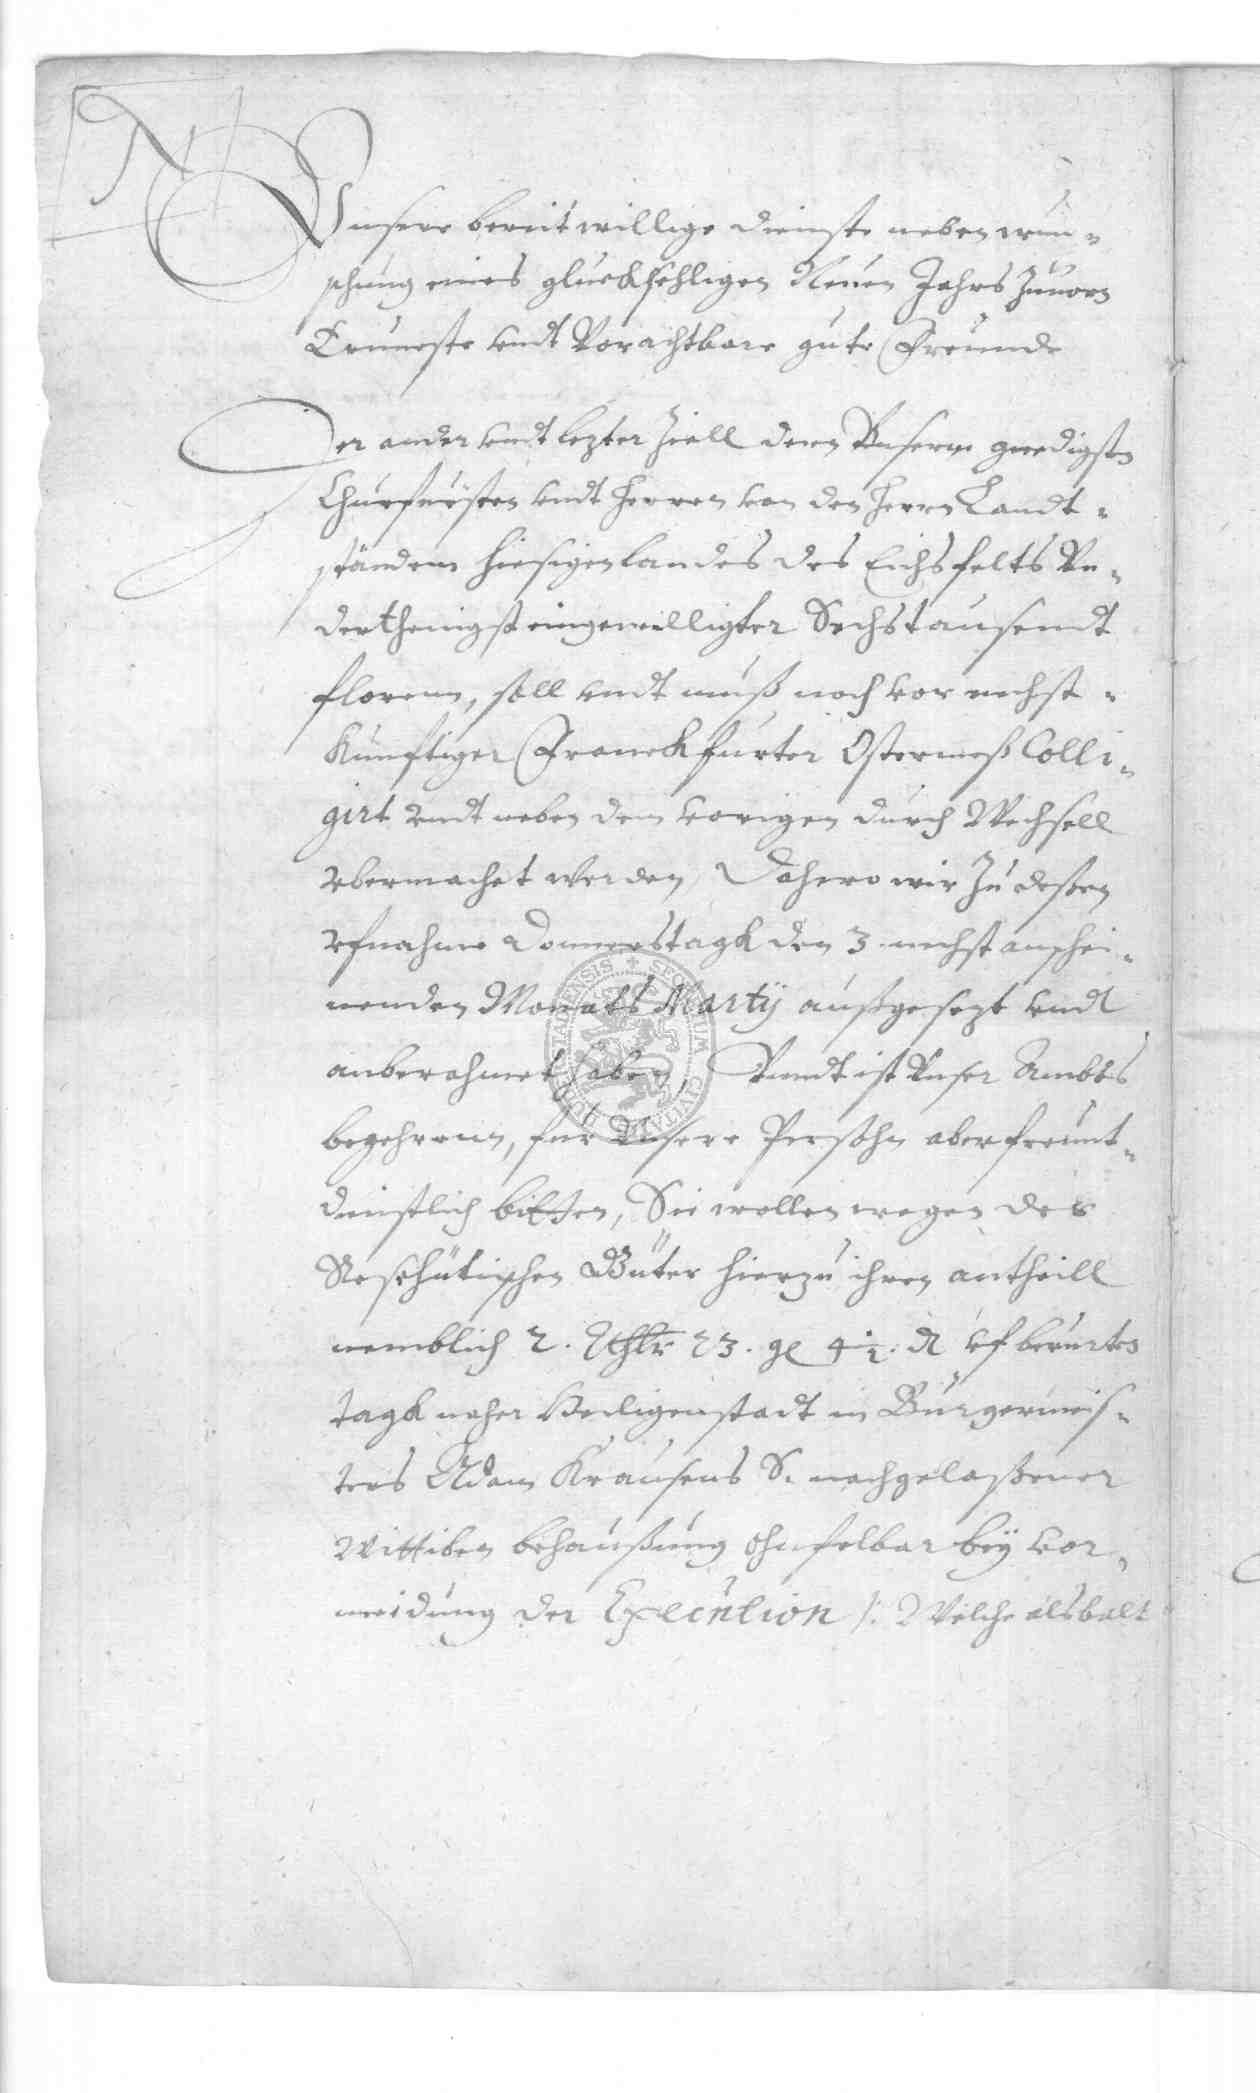 Vnsere bereitwillige dienste neben wün-
schung eines glückseligen Neuen Jahrs Zuuorn
Ernueste vndt Vorachtbare gute Freunde
Der ander vndt lezter Ziell deren Vnserm gnedigsten
Churfürsten vndt Herren von den Herrn Landt-
ständen hiesigen Landes des Eichsfelts Vn-
derthenigst eingewilligter Sechstausendt
florenn, soll vndt muß noch vor nechst-
künftiger Franckfurter Ostermeß Colli-
girt vndt neben dem vorigen durch Wechsell
vbermachet werden, Dahero wir Zu deßen
vfnahme Donnerstagk den 3. nechst anschei-
nenden Monats Martij außgesezt vndt
anberahmet haben, Vnndt ist Vnser Ambts
begehrenn, für Vnsere Persohn aber freunt-
dienstlich bitten, Sie wollen wegen der
Güter hierzu ihren antheill
nemblich 2. Rthlr 23. gl 4 1/2. d vf berürten
tagk naher Heiligenstadt in Bürgermeis-
ters Adam Krausens S. nachgelaßener
Wittiben behaußung ohnfelbar beÿ vor-
meidung der Execution /: Welche alsbalt
SECRETUM CIVITATIS DUDERSTADENSIS